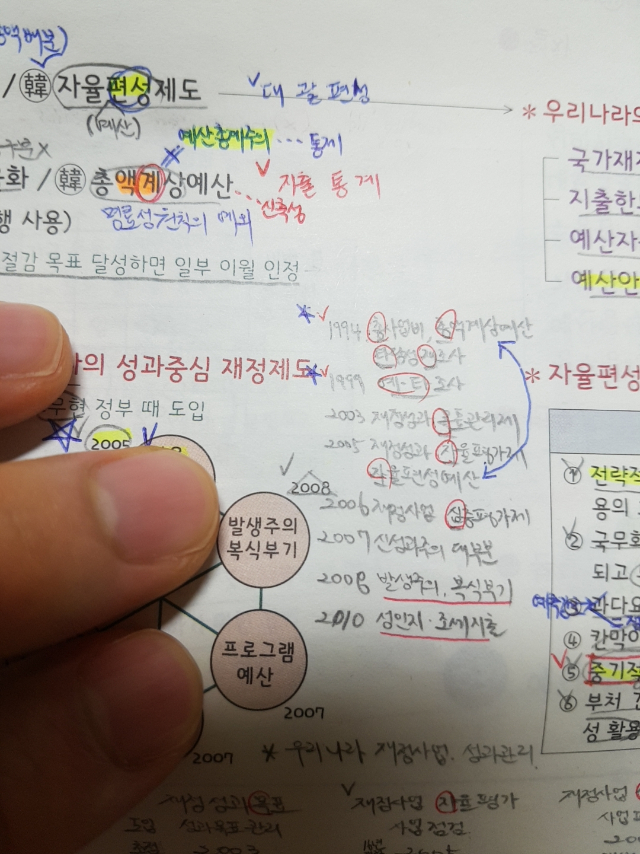 / 韓 자율편성제도
대괄편성
* 우리나라의
(예산)
예산총계주의 ... 통제
국가재정
화 / 韓 총액계상예산 ... 자율 통제
신축성
지출한도
행 사용)
명료성 원칙의 예외
예산자
절감 목표 달성하면 일부 이월 인정
예산안
1994 총사업비, 총액계상예산
타당성 재조사
의 성과중심 재정제도
1999 예-타 조사
* 자율편성
무현 정부 때 도입
2003 재정성과 목표관리제
2005
2005 재정성과 자율평가제
자율편성예산
① 전략적
용의
2008
발생주의
복식부기
2006 재정사업 심층평가제
② 국무회
2007 신성과주의 대부분
되고
2008 발생주의, 복식부기
③ 과다요
2010 성인지·조세지출
④ 칸막이
프로그램
예산
⑤ 중기적
⑥ 부처 간
2007
성 활용
2007
* 우리나라 재정사업. 성과관리.
재정성과목표
재정사업 자율평가
재정사업
도입 성과목표 관리
사업점검
2003